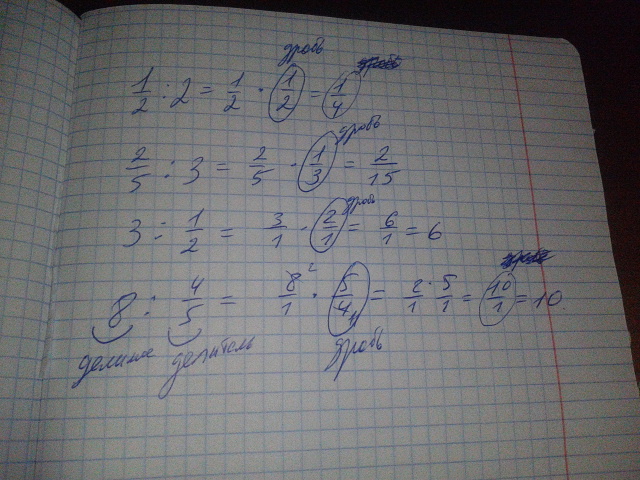 дробь
1/2 : 2 = 1/2 · 1/2 = 1/4
дробь
2/5 : 3 = 2/5 · 1/3 = 2/15
дробь
3 : 1/2 = 3/1 · 2/1 = 6/1 = 6
8 : 4/5 = 8/1 · 5/4 = 2/1 · 5/1 = 10/1 = 10
делимое делитель дробь